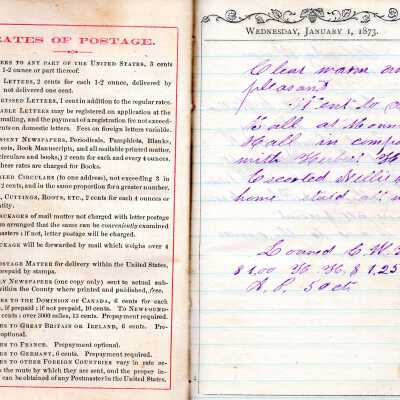 RATES OF POSTAGE.
RS TO ANY PART OF THE UNITED STATES, 3 cents
1-2 ounce or part thereof.
LETTERS, 2 cents for each 1-2 ounce, delivered by
not delivered one cent.
RTISED LETTERS, 1 cent in addition to the regular rates.
ABLE LETTERS may be registered on application at the
mailing, and the payment of a registration fee not exceed-
ents on domestic letters. Fees on foreign letters variable.
IENT NEWSPAPERS, Periodicals, Pamphlets, Blanks,
eets, Book Manuscripts, and all available printed matter,
circulars and books,) 2 cents for each and every 4 ounces.
hese rates are charged for Books.
LED CIRCULARS (to one address), not exceeding 3 in
2 cents, and in the same proportion for a greater number.
, CUTTINGS, ROOTS, ETC., 2 cents for each 4 ounces or
ntity.
PACKAGES of mail matter not charged with letter postage
o arranged that the same can be conveniently examined
masters; if not, letter postage will be charged.
ACKAGE will be forwarded by mail which weighs over 4
OSTAGE MATTER for delivery within the United States,
prepaid by stamps.
LY NEWSPAPERS (one copy only) sent to actual sub-
within the County where printed and published, free.
RS TO THE DOMINION OF CANADA, 6 cents for each
, if prepaid; if not prepaid, 10 cents. To NEWFOUND-
cents; over 3000 miles, 15 cents. Prepayment required.
RS TO GREAT BRITAIN OR IRELAND, 6 cents. Pre-
optional.
RS TO FRANCE. Prepayment optional.
RS TO GERMANY, 6 cents. Prepayment required.
RS TO OTHER FOREIGN COUNTRIES vary in rate ac-
the route by which they are sent, and the proper in-
can be obtained of any Postmaster in the United States.
WEDNESDAY, JANUARY 1, 1873.
Clear warm and
pleasant
Went to a
Ball at
Hall in comp
with
Escorted Nellie
home staid all n
Loaned C. W.
$1.00 H. H. $1.25
P. 50 cts